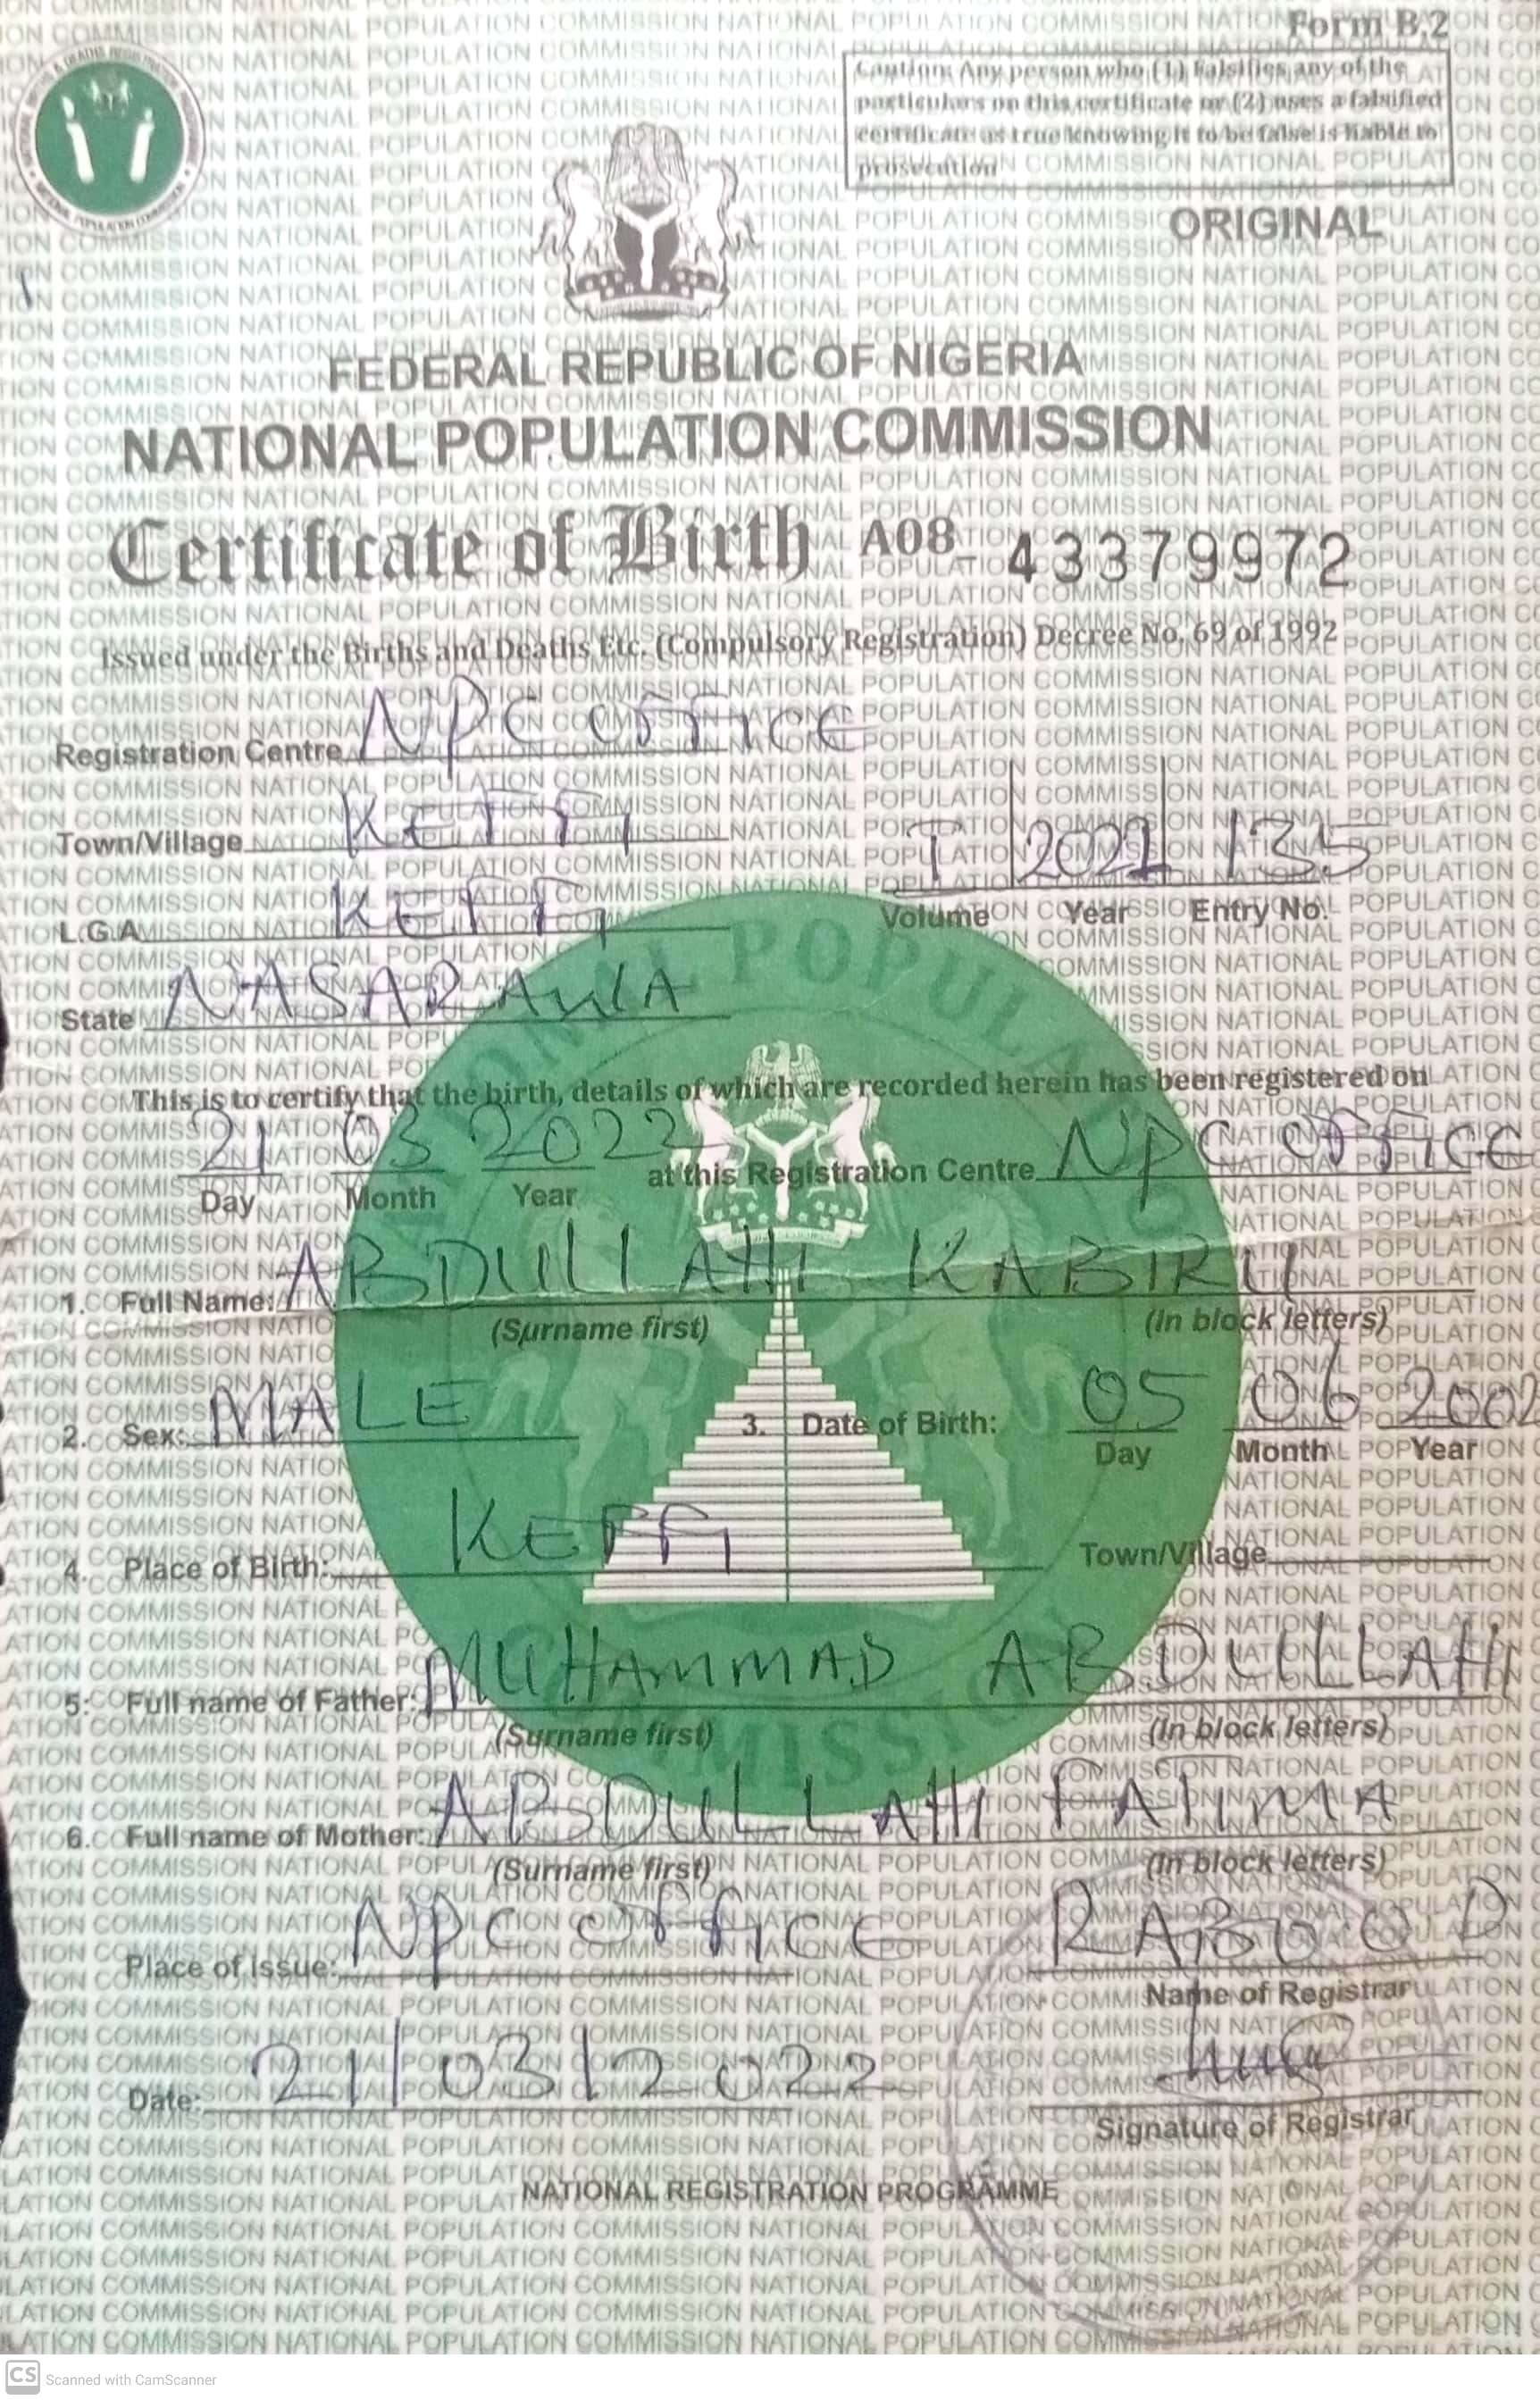 Form B.2
Caution: Any person who (1) falsifies any of the
particulars on this certificate or (2) uses a falsified
certificate as true knowing it to be false is liable to
prosecution
ORIGINAL
FEDERAL REPUBLIC OF NIGERIA
NATIONAL POPULATION COMMISSION
Certificate of Birth A08 43379972
Issued under the Births and Deaths Etc. (Compulsory Registration) Decree No. 69 of 1992
Registration Centre NPC OFFICE
Town/Village KEFFI
I 2021 135
L.G.A KEFFI
Volume Year Entry No.
State NASARAWA
This is to certify that the birth, details of which are recorded herein has been registered on
21 03 2022 at this Registration Centre NPC OFFICE
Day Month Year
1. Full Name: ABDULLAHI KABIRU
(Surname first) (In block letters)
2. Sex: MALE 3. Date of Birth: 05 06 2002
Day Month Year
4. Place of Birth: KEFFI Town/Village
5: Full name of Father: MUHAMMAD ABDULLAHI
(Surname first) (In block letters)
6. Full name of Mother: ABDULLAHI FATIMA
(Surname first) (In block letters)
Place of Issue: NPC OFFICE
Name of Registrar
Date: 21/03/2022
Signature of Registrar
NATIONAL REGISTRATION PROGRAMME
CS Scanned with CamScanner